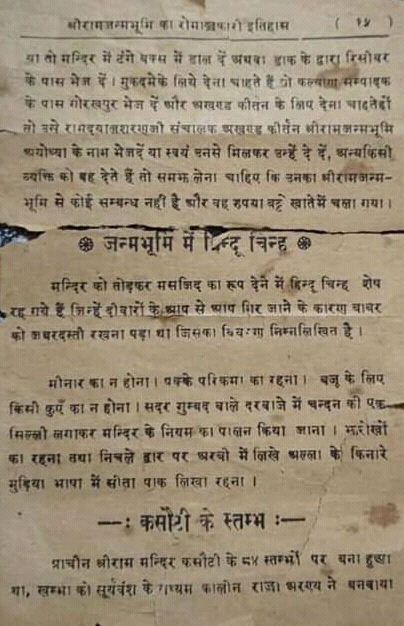 श्रीरामजन्मभूमि का रोमाञ्चकारी इतिहास ( १५ )
या तो मन्दिर में टंगे बक्स में डाल दें अथवा डाक के द्वारा रिसीवर
के पास भेज दें । मुकदमेके लिये देना चाहते हैं तो कल्याण सम्पादक
के पास गोरखपुर भेज दें और अखण्ड कीर्तन के लिए देना चाहतेहों
तो उसे रामदयालशरणजी संचालक अखण्ड कीर्तन श्रीरामजन्मभूमि
अयोध्या के नाम भेजदें या स्वयं उनसे मिलकर उन्हें दे दें, अन्यकिसी
व्यक्ति को वह देते हैं तो समझ लेना चाहिए कि उनका श्रीरामजन्म-
भूमि से कोई सम्बन्ध नहीं है और वह रुपया बट्टे खातेमें चला गया ।
❁ जन्मभूमि में हिन्दू चिन्ह ❁
मन्दिर को तोड़कर मसजिद का रूप देने में हिन्दू चिन्ह शेष
रह गये हैं जिन्हें दीवारों के आप से आप गिर जाने के कारण बाबर
को जबरदस्ती रखना पड़ा था जिसका विवरण निम्नलिखित है ।
मीनार का न होना । पक्के परिक्रमा का रहना । बजू के लिए
किसी कुएँ का न होना । सदर गुम्बद वाले दरवाजे में चन्दन की एक
सिल्ली लगाकर मन्दिर के नियम का पालन किया जाना । झरोखों
का रहना तथा निचले द्वार पर अरबी में लिखे अल्ला के किनारे
मुड़िया भाषा में सीता पाक लिखा रहना ।
—: कसौटी के स्तम्भ :—
प्राचीन श्रीराम मन्दिर कसौटी के ८४ स्तम्भों पर बना हुआ
था, खम्भा को सूर्यवंश के मध्यम कालीन राजा अरण्य ने बनवाया